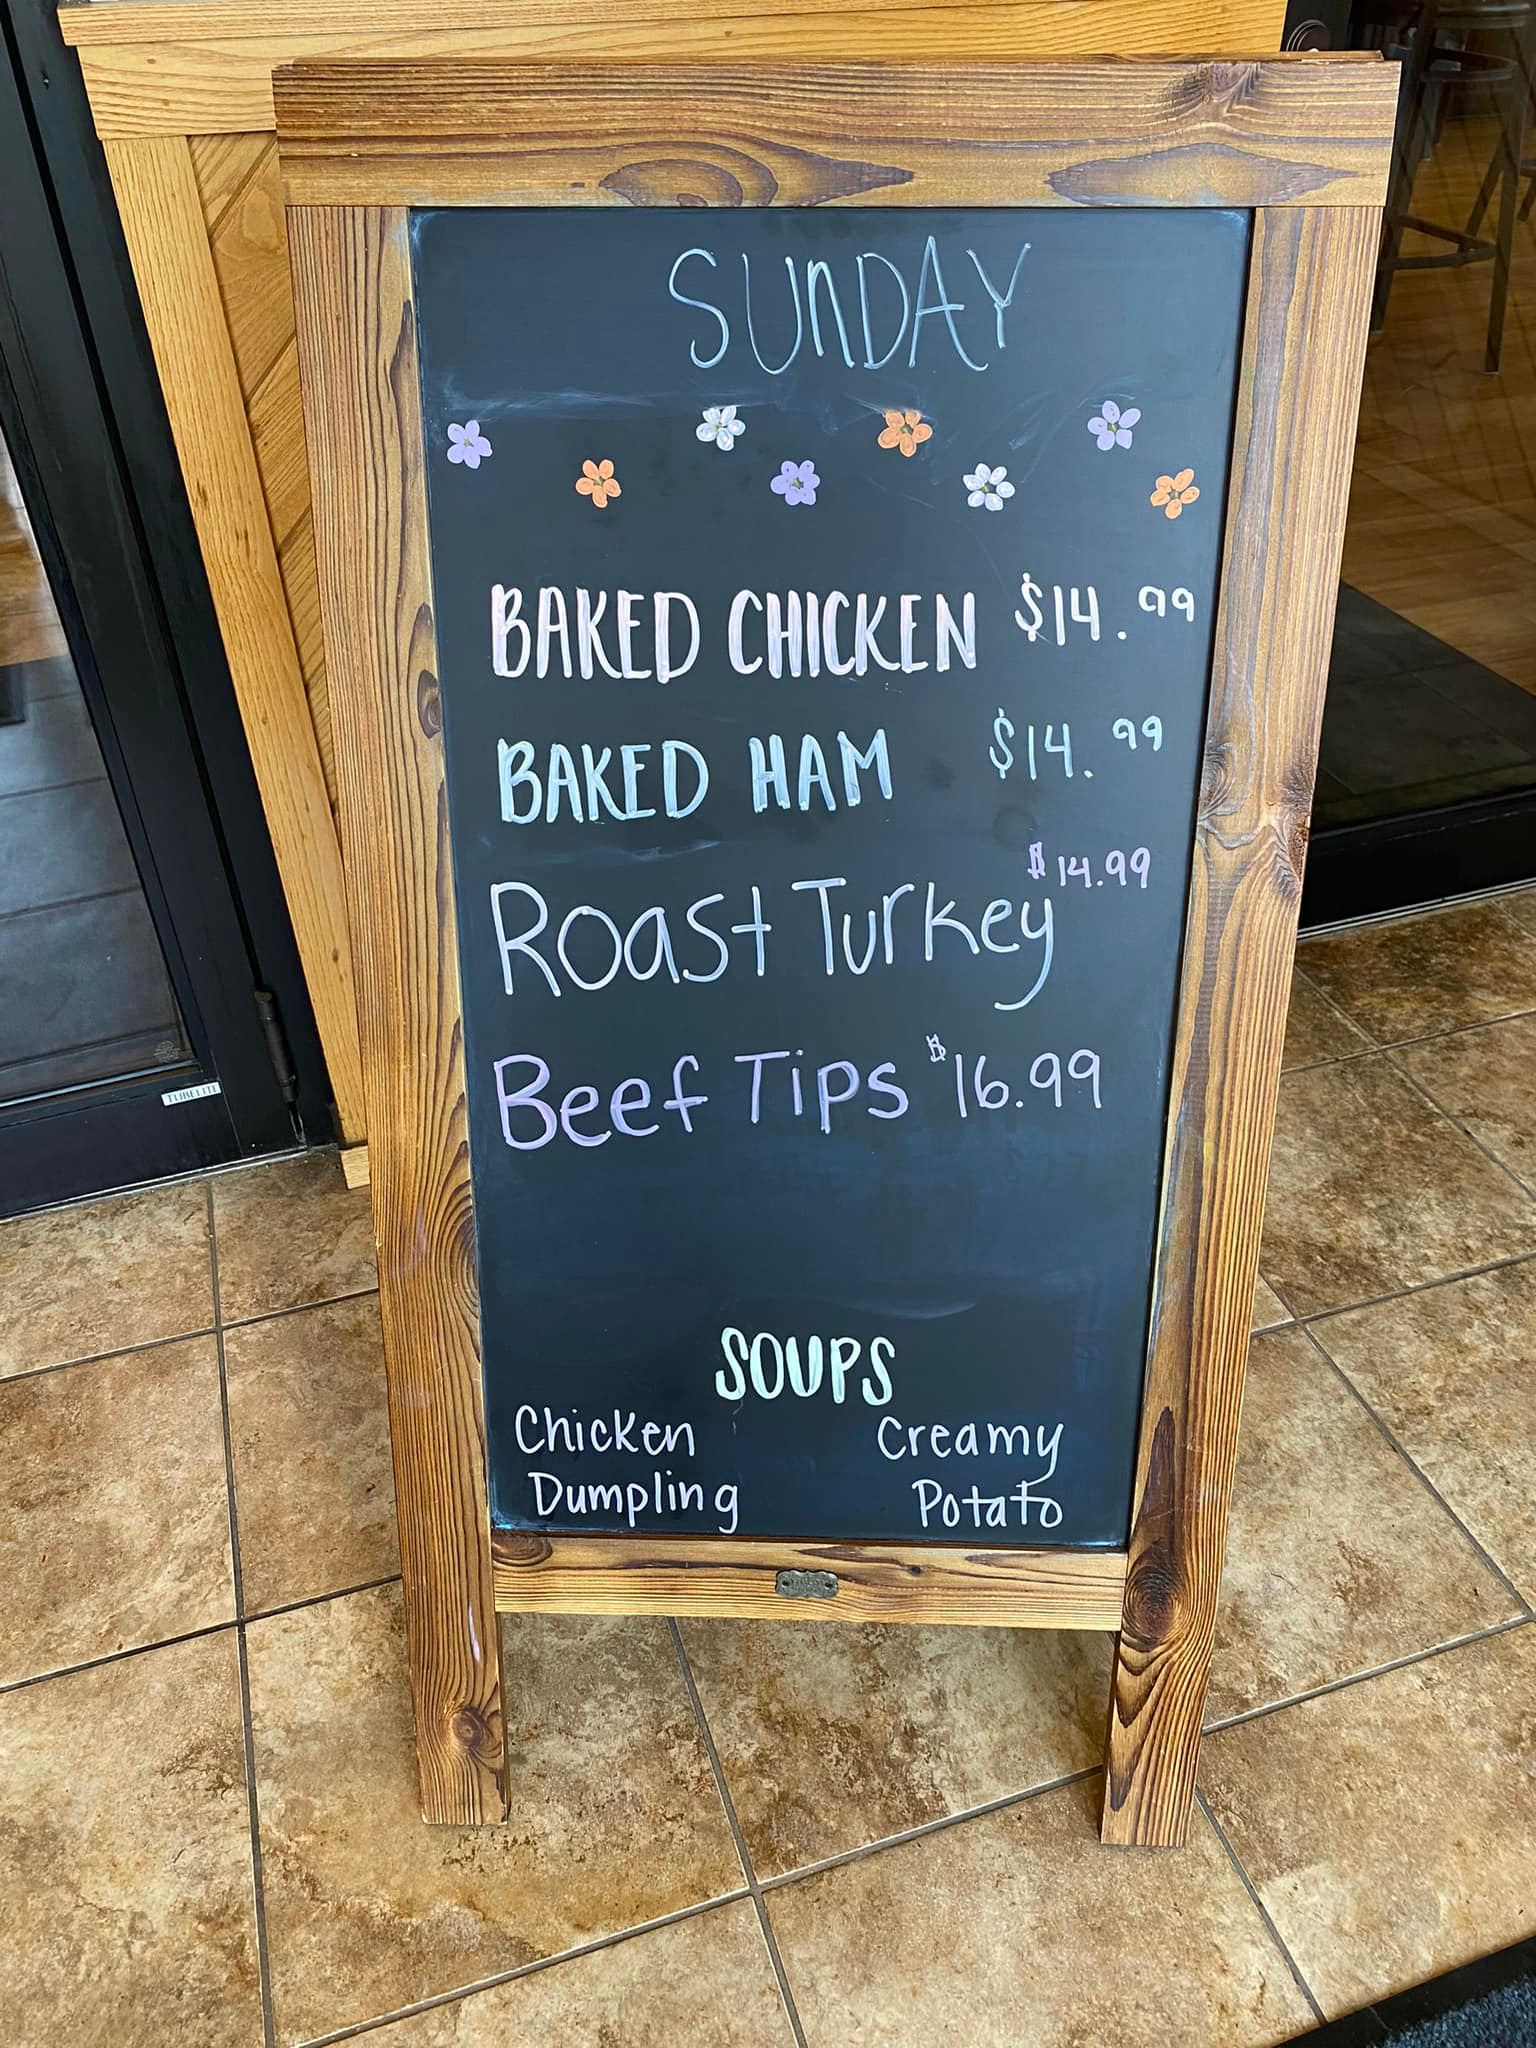 SUNDAY
BAKED CHICKEN $14.99
BAKED HAM $14.99
Roast Turkey $14.99
Beef Tips $16.99
SOUPS
Chicken Dumpling
Creamy Potato
TUBELITE